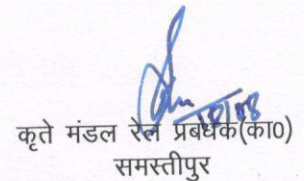 कृते मंडल रेल प्रबंधक(का0)
समस्तीपुर